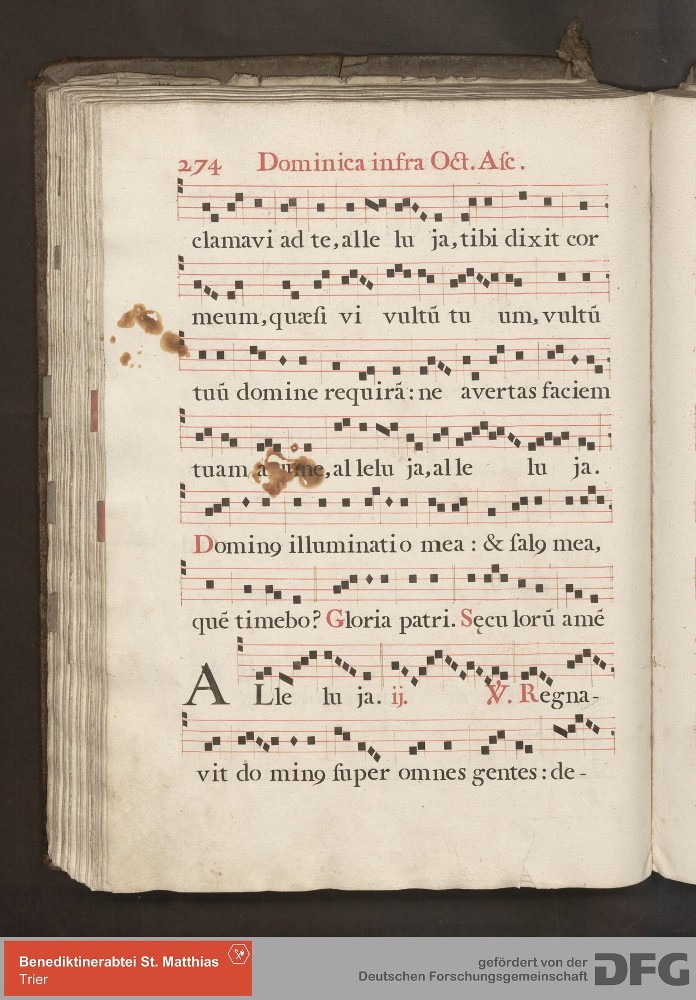 274 Dominica infra Oct. Asc.
clamavi ad te, alle lu ja, tibi dixit cor
meum, quæsi vi vultū tu um, vultū
tuū domine requirā: ne avertas faciem
tuam a me, al lelu ja, al le lu ja.
Dominꝯ illuminatio mea: & salꝯ mea,
quē timebo? Gloria patri. Sęcu lorū amē
A Lle lu ja. ij. ℣. Regna-
vit do minꝯ super omnes gentes: de-
Benediktinerabtei St. Matthias
Trier
gefördert von der
Deutschen Forschungsgemeinschaft DFG